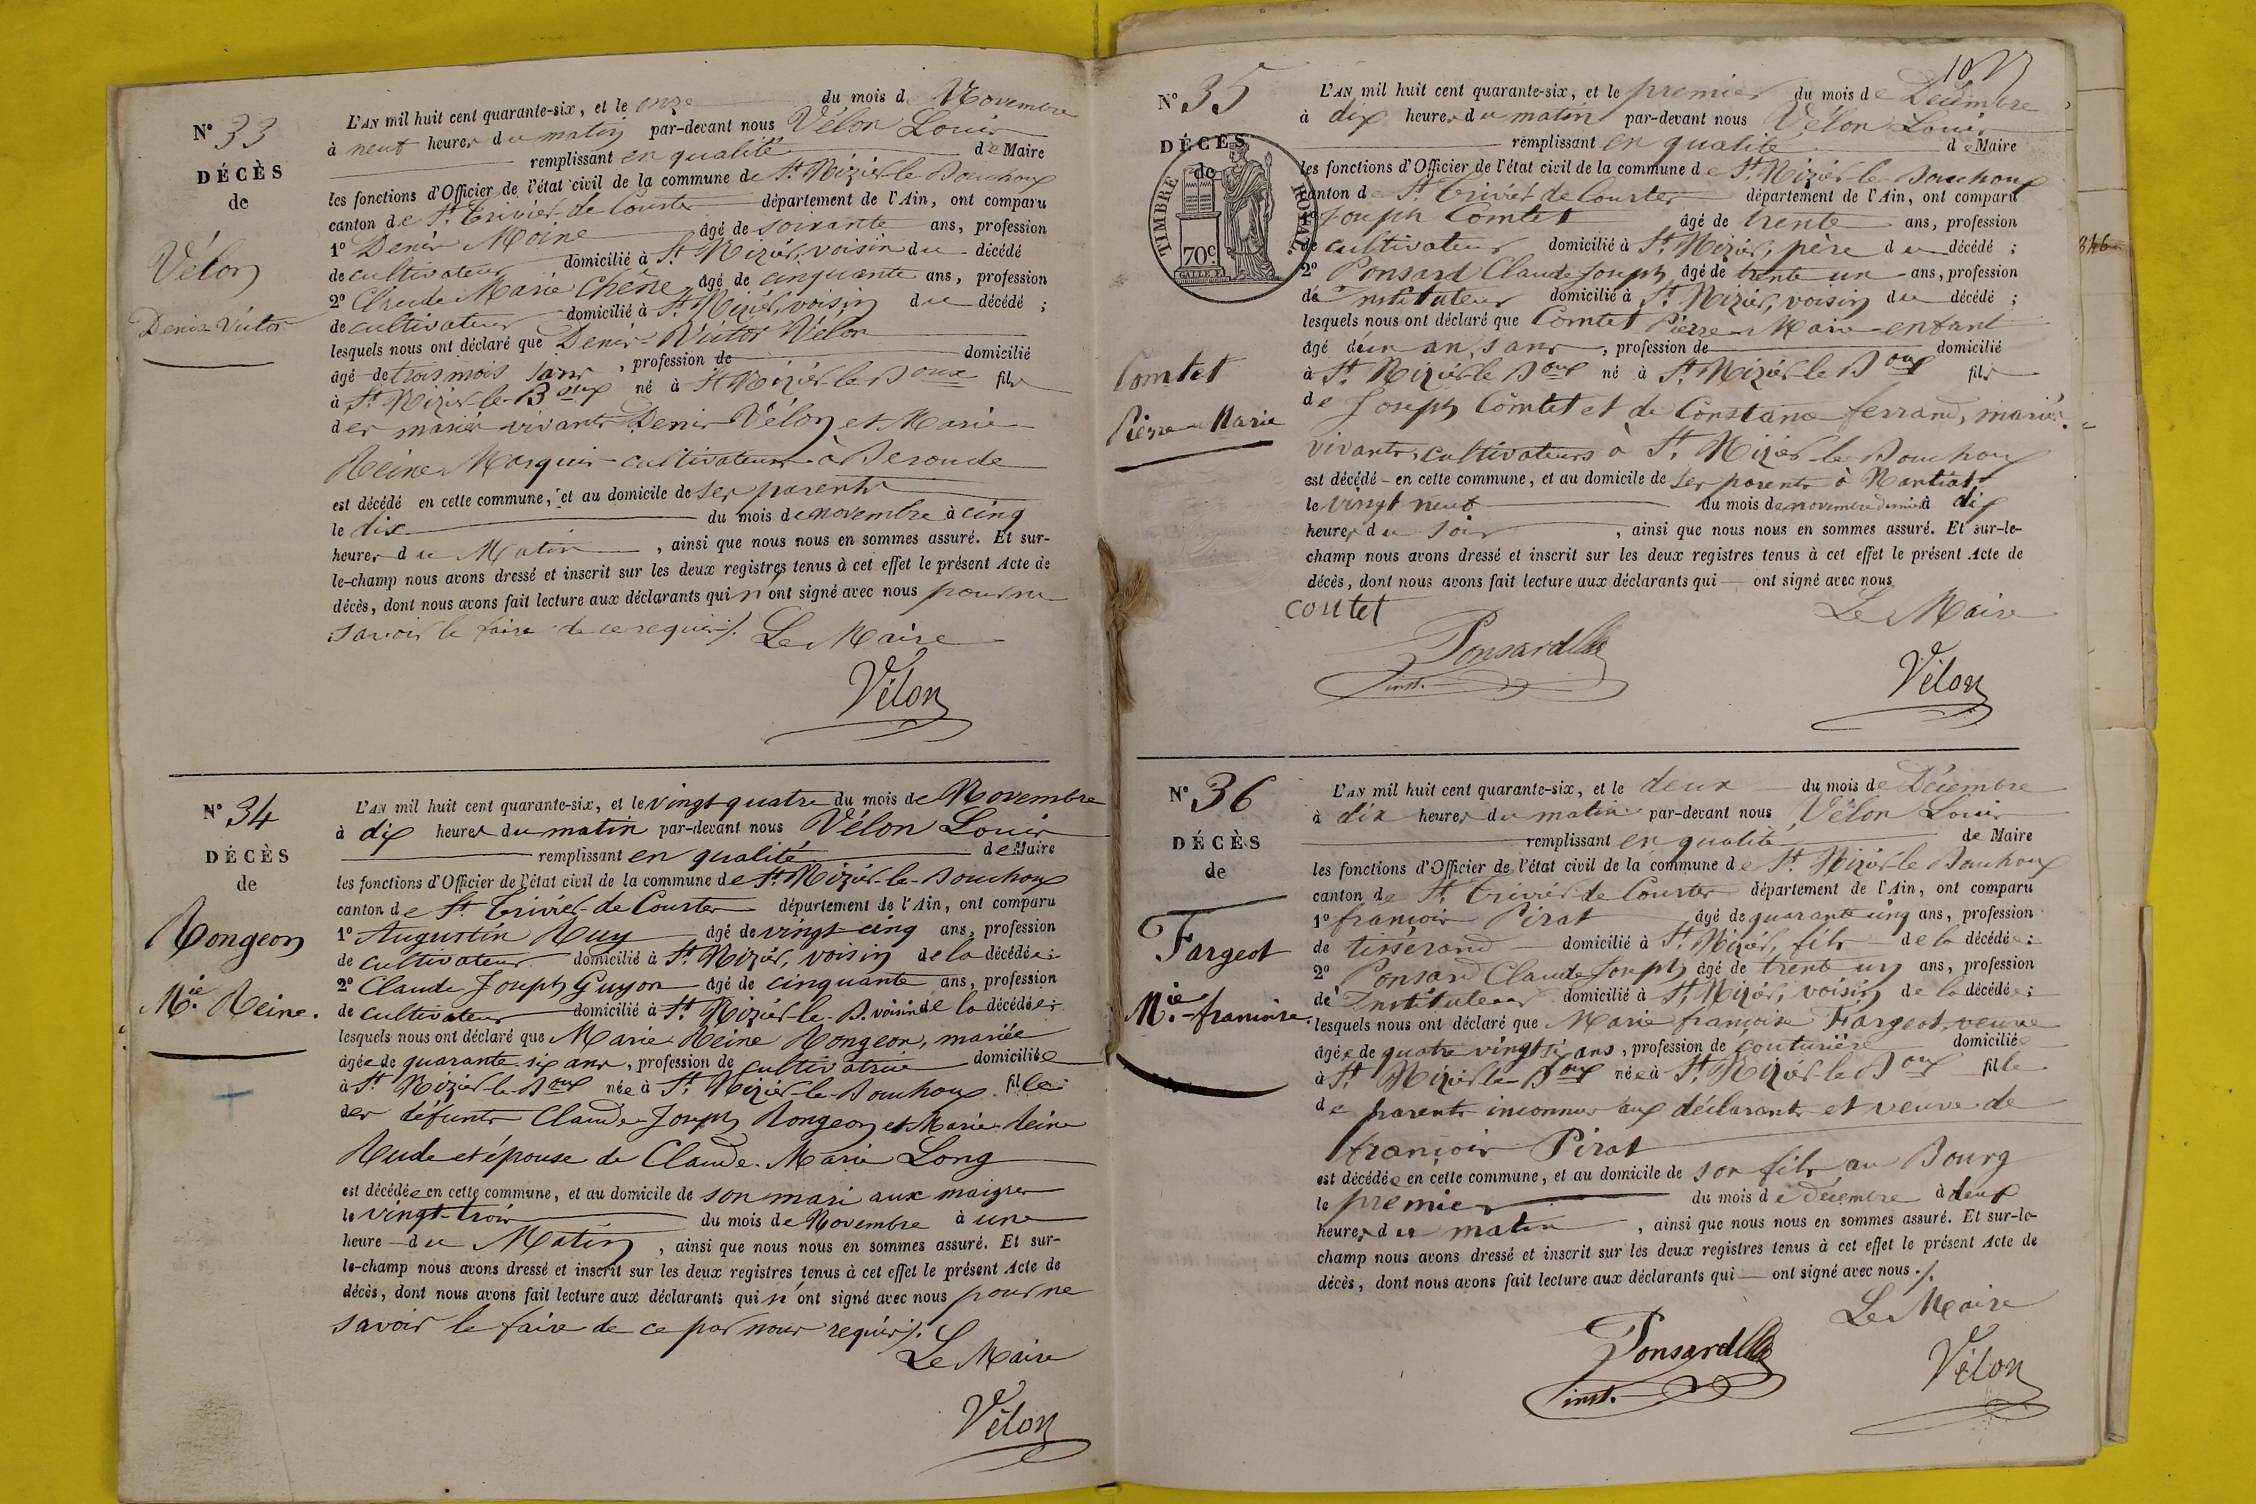 N° 33
DÉCÈS
de
Vélon
Denis Victor
L'AN mil huit cent quarante-six, et le onze du mois de Novembre
à neuf heures du matin par-devant nous Vélon Louis
remplissant en qualité de Maire
les fonctions d'Officier de l'état civil de la commune de St. Nizier-le-Bouchoux
canton de St. Trivier-de-Courtes département de l'Ain, ont comparu
1° Denis Moine âgé de soixante ans, profession
de cultivateur domicilié à St. Nizier, voisin du décédé
2° Claude Marie Chêne âgé de cinquante ans, profession
de cultivateur domicilié à St. Nizier, voisin du décédé ;
lesquels nous ont déclaré que Denis Victor Vélon
âgé de trois mois sans, profession de domicilié
à St. Nizier-le-Boux né à St. Nizier-le-Boux fils
des mariés vivants Denis Vélon et Marie
Reine Marquis cultivateurs à Beronde
est décédé en cette commune, et au domicile de ses parents
le dix du mois de novembre à cinq
heures du Matin, ainsi que nous nous en sommes assuré. Et sur-
le-champ nous avons dressé et inscrit sur les deux registres tenus à cet effet le présent Acte de
décès, dont nous avons fait lecture aux déclarants qui n'ont signé avec nous pour ne
savoir le faire de ce requis ./.
Le Maire
Vélon
N° 34
DÉCÈS
de
Rongeon
Mie. Reine.
L'AN mil huit cent quarante-six, et le vingt-quatre du mois de Novembre
à dix heures du matin par-devant nous Vélon Louis
remplissant en qualité de Maire
les fonctions d'Officier de l'état civil de la commune de St. Nizier-le-Bouchoux
canton de St. Trivier-de-Courtes département de l'Ain, ont comparu
1° Augustin Ruy âgé de vingt-cinq ans, profession
de cultivateur domicilié à St. Nizier, voisin de la décédée ;
2° Claude Joseph Guyon âgé de cinquante ans, profession
de cultivateur domicilié à St. Nizier-le-B. voisin de la décédée ;
lesquels nous ont déclaré que Marie Reine Rongeon, mariée
âgée de quarante six ans, profession de cultivatrice domiciliée
à St. Nizier-le-Boux née à St. Nizier-le-Bouchoux fille
des défunts Claude-Joseph Rongeon et Marie Reine
Rude et épouse de Claude-Marie Long
est décédée en cette commune, et au domicile de son mari aux maigres
le vingt-trois du mois de Novembre à une
heure du Matin, ainsi que nous nous en sommes assuré. Et sur-
le-champ nous avons dressé et inscrit sur les deux registres tenus à cet effet le présent Acte de
décès, dont nous avons fait lecture aux déclarants qui n'ont signé avec nous pour ne
savoir le faire de ce par nous requis ./.
Le Maire
Vélon
N° 35
DÉCÈS
de
TIMBRE ROYAL
70c.
Comtet
Pierre-Marie
L'AN mil huit cent quarante-six, et le premier du mois de Décembre
à dix heures du matin par-devant nous Vélon Louis
remplissant en qualité de Maire
les fonctions d'Officier de l'état civil de la commune de St. Nizier-le-Bouchoux
canton de St. Trivier de Courtes département de l'Ain, ont comparu
1° Joseph Comtet âgé de trente ans, profession
de cultivateur domicilié à St. Nizier, père du décédé ;
2° Ponsard Claude Joseph âgé de trente un ans, profession
de Instituteur domicilié à St. Nizier, voisin du décédé ;
lesquels nous ont déclaré que Comtet Pierre-Marie enfant
âgé de un an, sans, profession de domicilié
à St. Nizier-le-Boux né à St. Nizier-le-Boux fils
de Joseph Comtet et de Constance ferrand, mariés
vivants, cultivateurs à St. Nizier-le-Bouchoux
est décédé en cette commune, et au domicile de ses parents à
le vingt neuf du mois de novembre dernier à dix
heures du soir, ainsi que nous nous en sommes assuré. Et sur-le-
champ nous avons dressé et inscrit sur les deux registres tenus à cet effet le présent Acte de
décès, dont nous avons fait lecture aux déclarants qui ont signé avec nous
contet
Le Maire
Ponsard
inst.
Vélon
N° 36
DÉCÈS
de
Fargeot
Mie.-francoise.
L'AN mil huit cent quarante-six, et le deux du mois de Décembre
à dix heures du matin par-devant nous Vélon Louis
remplissant en qualité de Maire
les fonctions d'Officier de l'état civil de la commune de St. Nizier-le-Bouchoux
canton de St. Trivier de Courtes département de l'Ain, ont comparu
1° françois Pirat âgé de quarante cinq ans, profession
de tisserand domicilié à St. Nizier, fils de la décédée ;
2° Ponsard Claude Joseph âgé de trente un ans, profession
de Instituteur domicilié à St. Nizier, voisin de la décédée ;
lesquels nous ont déclaré que Marie françoise Fargeot, veuve
âgée de quatre vingt six ans, profession de couturière domiciliée
à St. Nizier-le-Boux née à St. Nizier-le-Boux fille
de parents inconnus aux déclarants et veuve de
françois Pirat
est décédée en cette commune, et au domicile de son fils au Bourg
le premier du mois de décembre à deux
heures du matin, ainsi que nous nous en sommes assuré. Et sur-le-
champ nous avons dressé et inscrit sur les deux registres tenus à cet effet le présent Acte de
décès, dont nous avons fait lecture aux déclarants qui ont signé avec nous ./.
Le Maire
Ponsard
inst.
Vélon